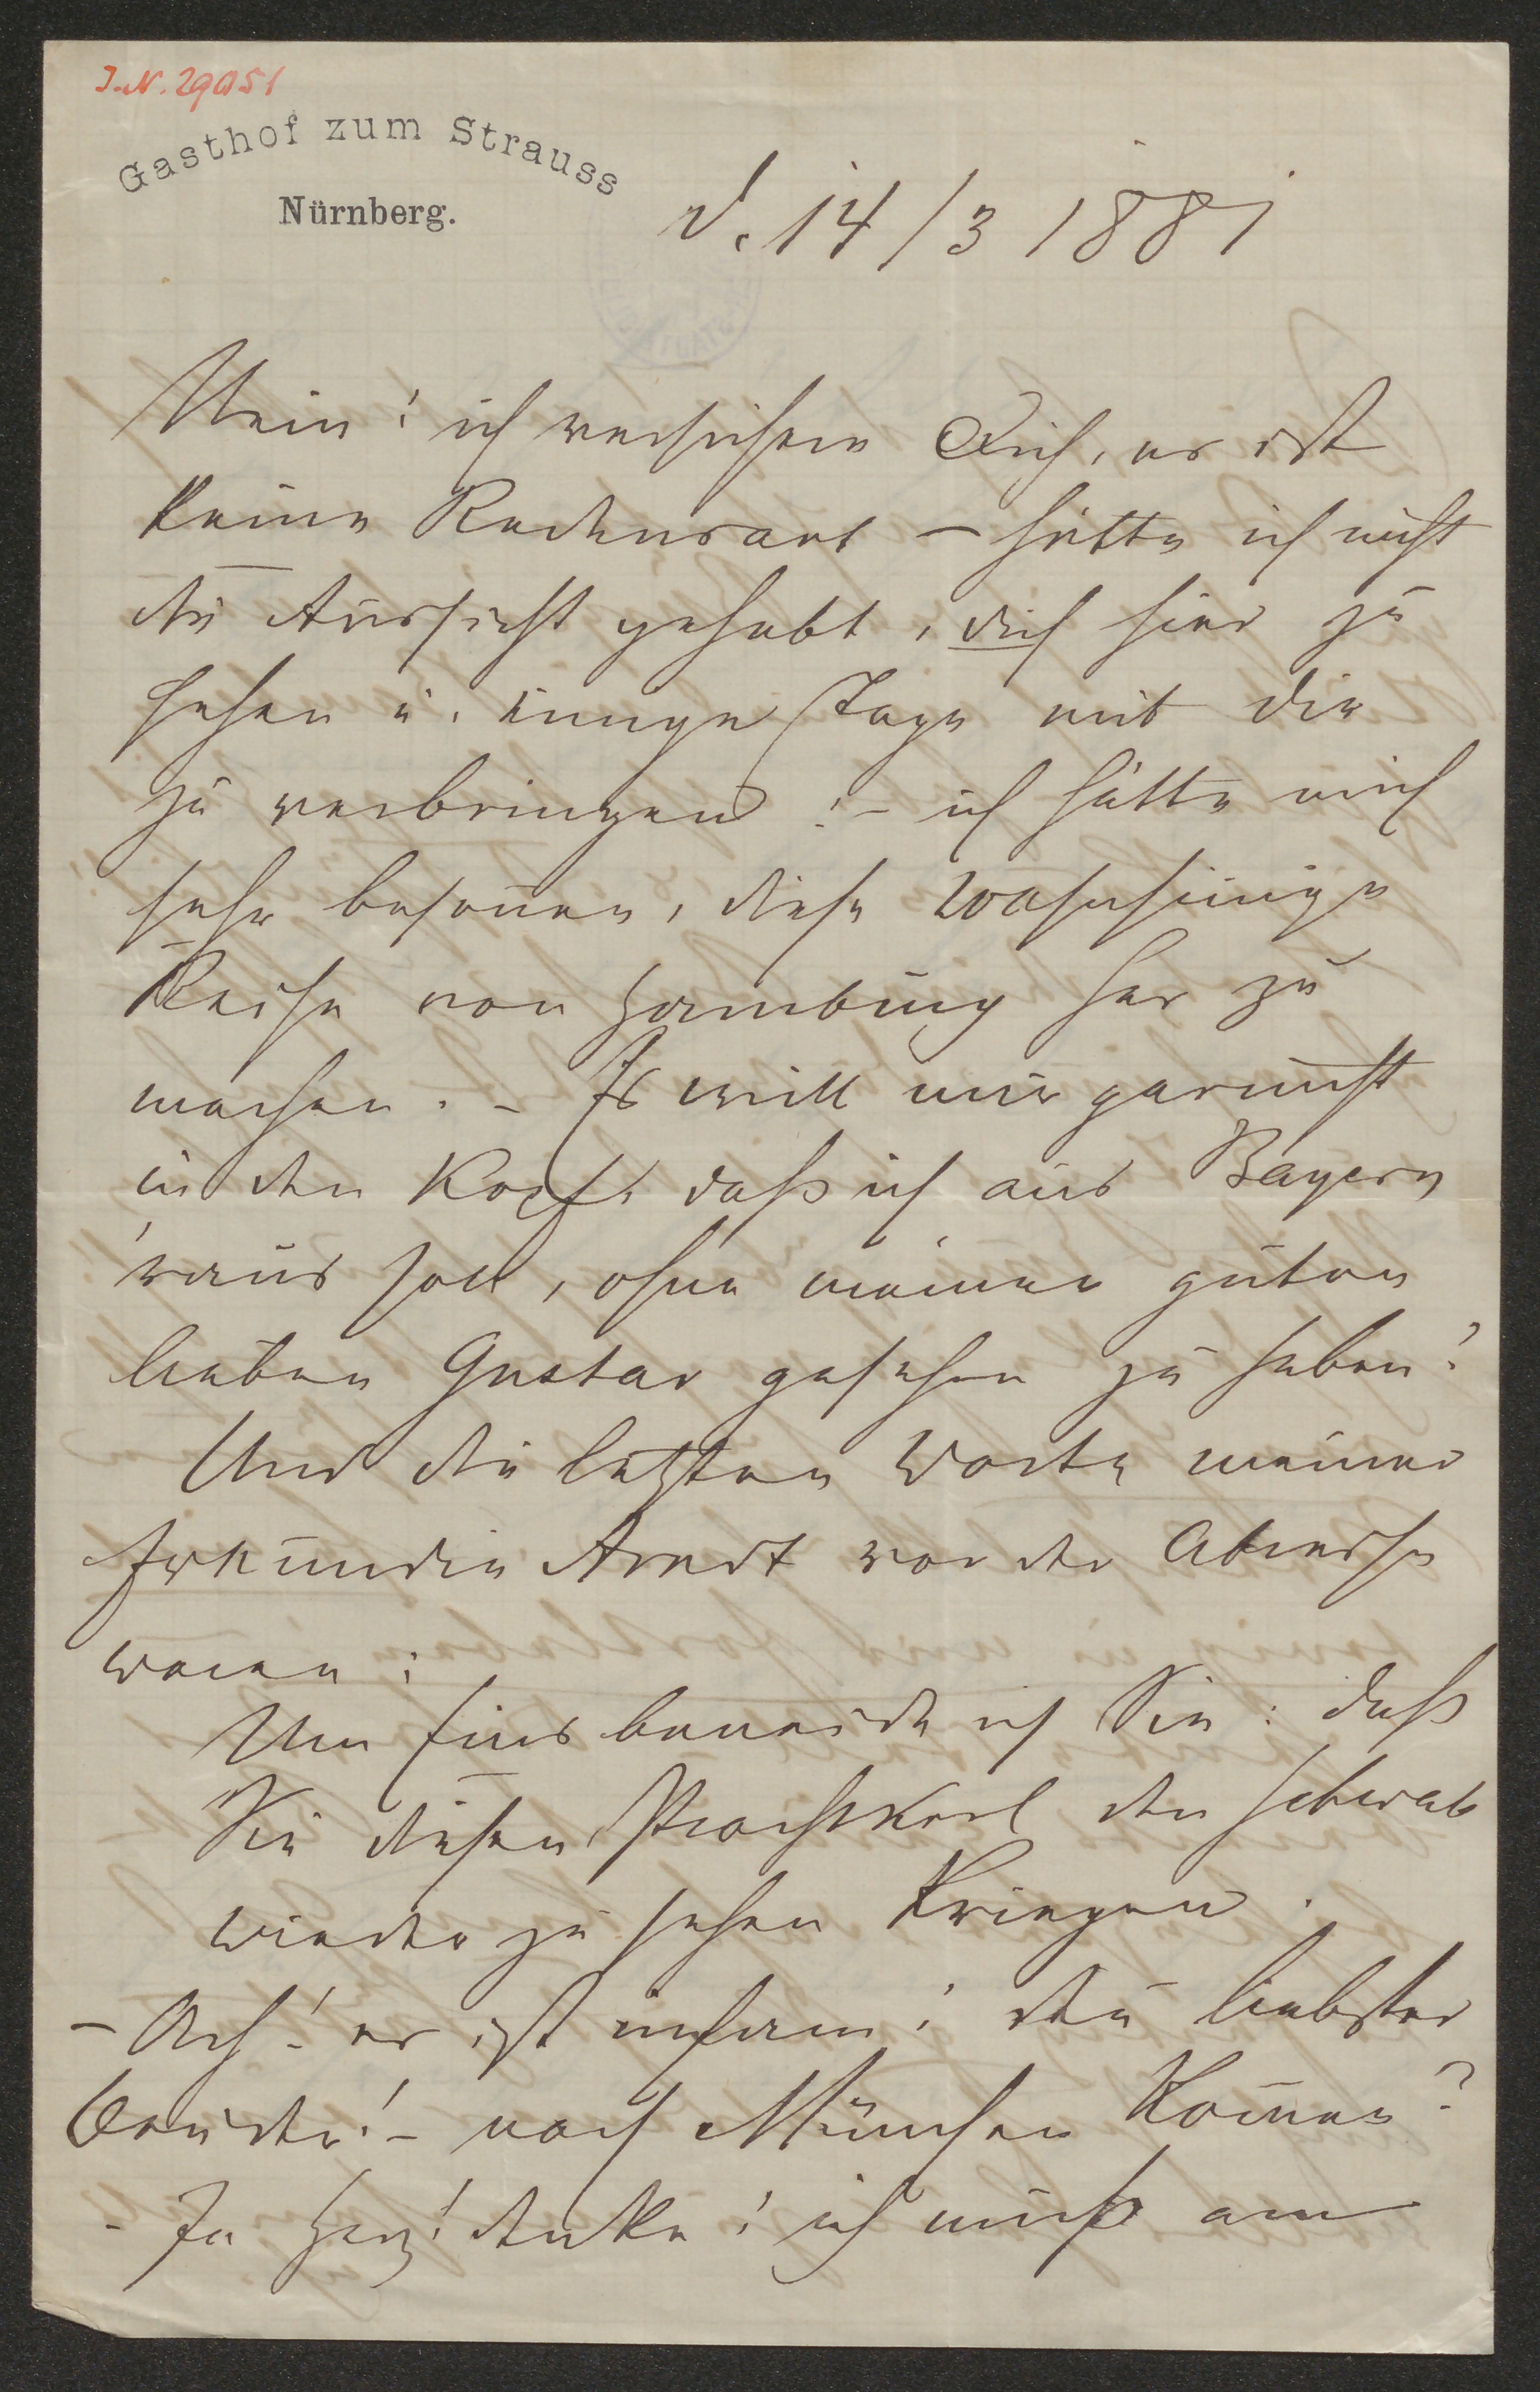 J.N. 29051
Gasthof zum Strauss
Nürnberg.
d. 14/3 1881
Nein! ich versichere Dich, es ist
keine Redensart – hätte ich nicht
die Aussicht gehabt, dich hier zu
sehen u. einige Tage mit dir
zu verbringen! – ich hätte mich
sehr besonnen, diese wahnsinnige
Reise von Hamburg her zu
machen. – Es will mir gar nicht
in den Kopf, daß ich aus Bayern
'raus soll, ohne meinen guten
lieben Gustav gesehen zu haben!
Und die letzten Worte meiner
Freundin Arndt vor der Abreise
waren:
Um Eins beneide ich Sie: daß
Sie diesen Prachtkerl den Schwab
wieder zu sehen kriegen.
– Ach! es ist infam! du liebster
Bruder! – nach München kommen?
– Ja Herz! denke! ich muß am